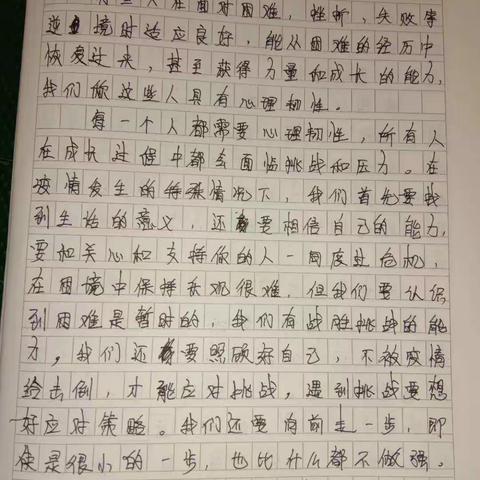 些人在面对困难,挫折,失败等
逆境时适应良好,能从困难的经历中
恢复过来,甚至获得力量和成长的能力,
我们做这些人具有心理韧性。
每一个人都需要心理韧性,所有人
在成长过程中都会面临挑战和压力。在
疫情发生的特殊情况下,我们首先要找
到生活的意义,还要相信自己的能力,
要和关心和支持你的人一同度过危机,
在困境中保持乐观很难,但我们要认识
到困难是暂时的,我们有战胜挑战的能
力,我们还要照顾好自己,不被疫情
给击倒,才能应对挑战,遇到挑战要想
好应对策略。我们还要向前走一步,即
使是很小的一步,也比什么都不做强。